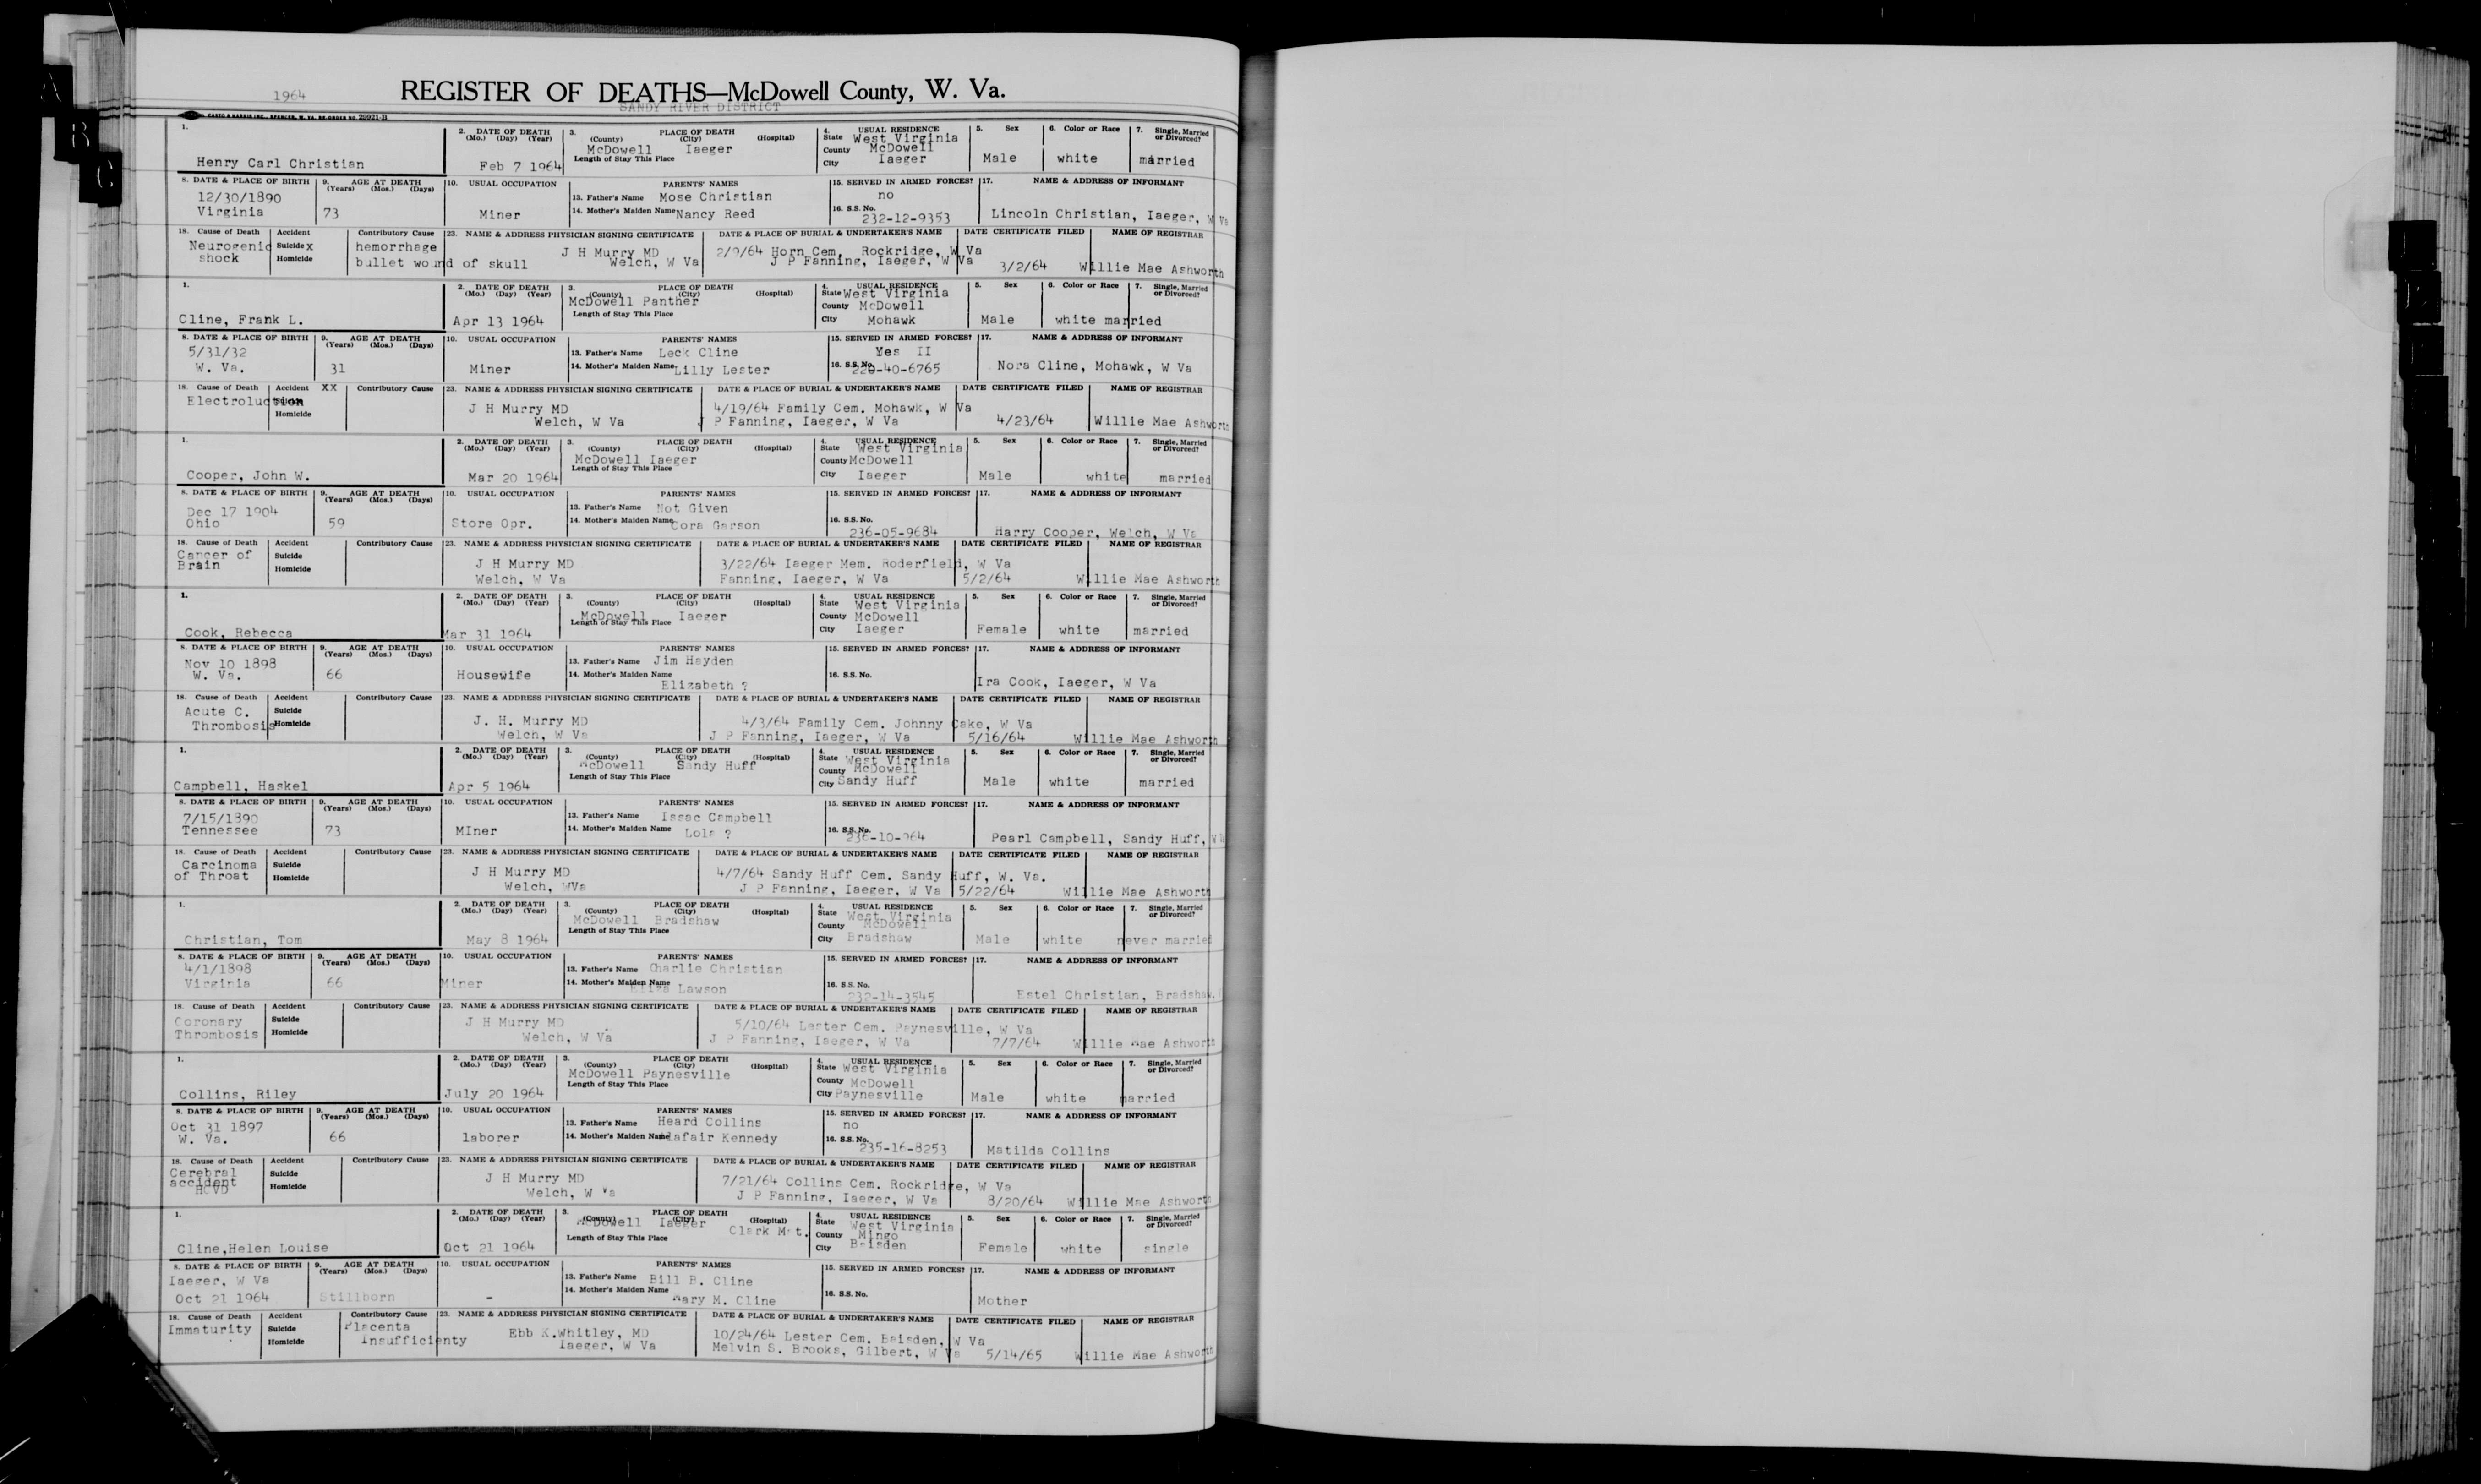 1964
REGISTER OF DEATHS—McDowell County, W. Va.
SANDY RIVER DISTRICT
CASTO & HARRIS INC., SPENCER, W. VA. RE-ORDER NO. 29921-B
1. 2. DATE OF DEATH 3. PLACE OF DEATH 4. USUAL RESIDENCE 5. Sex 6. Color or Race 7. Single, Married or Divorced?
(Mo.) (Day) (Year) (County) (City) (Hospital) State West Virginia
McDowell Iaeger County McDowell
Length of Stay This Place
Henry Carl Christian Feb 7 1964 City Iaeger Male white married
8. DATE & PLACE OF BIRTH 9. AGE AT DEATH 10. USUAL OCCUPATION PARENTS' NAMES 15. SERVED IN ARMED FORCES? 17. NAME & ADDRESS OF INFORMANT
(Years) (Mos.) (Days)
12/30/1890 13. Father's Name Mose Christian no
Virginia 73 Miner 14. Mother's Maiden Name Nancy Reed 16. S.S. No. 232-12-9353 Lincoln Christian, Iaeger, W Va
18. Cause of Death Accident Contributory Cause 23. NAME & ADDRESS PHYSICIAN SIGNING CERTIFICATE DATE & PLACE OF BURIAL & UNDERTAKER'S NAME DATE CERTIFICATE FILED NAME OF REGISTRAR
Neurogenic Suicide x hemorrhage J H Murry MD 2/9/64 Horn Cem, Rockridge, W Va
shock Homicide bullet wound of skull Welch, W Va J P Fanning, Iaeger, W Va 3/2/64 Willie Mae Ashworth
1. 2. DATE OF DEATH 3. PLACE OF DEATH 4. USUAL RESIDENCE 5. Sex 6. Color or Race 7. Single, Married or Divorced?
(Mo.) (Day) (Year) (County) (City) (Hospital) State West Virginia
McDowell Panther County McDowell
Length of Stay This Place
Cline, Frank L. Apr 13 1964 City Mohawk Male white married
8. DATE & PLACE OF BIRTH 9. AGE AT DEATH 10. USUAL OCCUPATION PARENTS' NAMES 15. SERVED IN ARMED FORCES? 17. NAME & ADDRESS OF INFORMANT
(Years) (Mos.) (Days)
5/31/32 13. Father's Name Leck Cline Yes II
W. Va. 31 Miner 14. Mother's Maiden Name Lilly Lester 16. S.S. No. -40-6765 Nora Cline, Mohawk, W Va
18. Cause of Death Accident XX Contributory Cause 23. NAME & ADDRESS PHYSICIAN SIGNING CERTIFICATE DATE & PLACE OF BURIAL & UNDERTAKER'S NAME DATE CERTIFICATE FILED NAME OF REGISTRAR
Electroluction Suicide J H Murry MD 4/19/64 Family Cem. Mohawk, W Va
Homicide Welch, W Va J P Fanning, Iaeger, W Va 4/23/64 Willie Mae Ashworth
1. 2. DATE OF DEATH 3. PLACE OF DEATH 4. USUAL RESIDENCE 5. Sex 6. Color or Race 7. Single, Married or Divorced?
(Mo.) (Day) (Year) (County) (City) (Hospital) State West Virginia
McDowell Iaeger County McDowell
Length of Stay This Place
Cooper, John W. Mar 20 1964 City Iaeger Male white married
8. DATE & PLACE OF BIRTH 9. AGE AT DEATH 10. USUAL OCCUPATION PARENTS' NAMES 15. SERVED IN ARMED FORCES? 17. NAME & ADDRESS OF INFORMANT
(Years) (Mos.) (Days)
Dec 17 1904 13. Father's Name Not Given
Ohio 59 Store Opr. 14. Mother's Maiden Name Cora Garson 16. S.S. No. 236-05-9684 Harry Cooper, Welch, W Va
18. Cause of Death Accident Contributory Cause 23. NAME & ADDRESS PHYSICIAN SIGNING CERTIFICATE DATE & PLACE OF BURIAL & UNDERTAKER'S NAME DATE CERTIFICATE FILED NAME OF REGISTRAR
Cancer of Suicide J H Murry MD 3/22/64 Iaeger Mem. Roderfield, W Va
Brain Homicide Welch, W Va Fanning, Iaeger, W Va 5/2/64 Willie Mae Ashworth
1. 2. DATE OF DEATH 3. PLACE OF DEATH 4. USUAL RESIDENCE 5. Sex 6. Color or Race 7. Single, Married or Divorced?
(Mo.) (Day) (Year) (County) (City) (Hospital) State West Virginia
McDowell Iaeger County McDowell
Length of Stay This Place
Cook, Rebecca Mar 31 1964 City Iaeger Female white married
8. DATE & PLACE OF BIRTH 9. AGE AT DEATH 10. USUAL OCCUPATION PARENTS' NAMES 15. SERVED IN ARMED FORCES? 17. NAME & ADDRESS OF INFORMANT
(Years) (Mos.) (Days)
Nov 10 1898 13. Father's Name Jim Hayden
W. Va. 66 Housewife 14. Mother's Maiden Name Elizabeth ? 16. S.S. No. Ira Cook, Iaeger, W Va
18. Cause of Death Accident Contributory Cause 23. NAME & ADDRESS PHYSICIAN SIGNING CERTIFICATE DATE & PLACE OF BURIAL & UNDERTAKER'S NAME DATE CERTIFICATE FILED NAME OF REGISTRAR
Acute C. Suicide J. H. Murry MD 4/3/64 Family Cem. Johnny Cake, W Va
Thrombosis Homicide Welch, W Va J P Fanning, Iaeger, W Va 5/16/64 Willie Mae Ashworth
1. 2. DATE OF DEATH 3. PLACE OF DEATH 4. USUAL RESIDENCE 5. Sex 6. Color or Race 7. Single, Married or Divorced?
(Mo.) (Day) (Year) (County) (City) (Hospital) State West Virginia
McDowell Sandy Huff County McDowell
Length of Stay This Place
Campbell, Haskel Apr 5 1964 City Sandy Huff Male white married
8. DATE & PLACE OF BIRTH 9. AGE AT DEATH 10. USUAL OCCUPATION PARENTS' NAMES 15. SERVED IN ARMED FORCES? 17. NAME & ADDRESS OF INFORMANT
(Years) (Mos.) (Days)
7/15/1890 13. Father's Name Issac Campbell
Tennessee 73 MIner 14. Mother's Maiden Name Lola ? 16. S.S. No. 236-10-964 Pearl Campbell, Sandy Huff, W Va
18. Cause of Death Accident Contributory Cause 23. NAME & ADDRESS PHYSICIAN SIGNING CERTIFICATE DATE & PLACE OF BURIAL & UNDERTAKER'S NAME DATE CERTIFICATE FILED NAME OF REGISTRAR
Carcinoma Suicide J H Murry MD 4/7/64 Sandy Huff Cem. Sandy Huff, W. Va.
of Throat Homicide Welch, WVa J P Fanning, Iaeger, W Va 5/22/64 Willie Mae Ashworth
1. 2. DATE OF DEATH 3. PLACE OF DEATH 4. USUAL RESIDENCE 5. Sex 6. Color or Race 7. Single, Married or Divorced?
(Mo.) (Day) (Year) (County) (City) (Hospital) State West Virginia
McDowell Bradshaw County McDowell
Length of Stay This Place
Christian, Tom May 8 1964 City Bradshaw Male white never married
8. DATE & PLACE OF BIRTH 9. AGE AT DEATH 10. USUAL OCCUPATION PARENTS' NAMES 15. SERVED IN ARMED FORCES? 17. NAME & ADDRESS OF INFORMANT
(Years) (Mos.) (Days)
4/1/1898 13. Father's Name Charlie Christian
Virginia 66 Miner 14. Mother's Maiden Name Eliza Lawson 16. S.S. No. 232-14-3545 Estel Christian, Bradshaw,
18. Cause of Death Accident Contributory Cause 23. NAME & ADDRESS PHYSICIAN SIGNING CERTIFICATE DATE & PLACE OF BURIAL & UNDERTAKER'S NAME DATE CERTIFICATE FILED NAME OF REGISTRAR
Coronary Suicide J H Murry MD 5/10/64 Lester Cem. Paynesville, W Va
Thrombosis Homicide Welch, W Va J P Fanning, Iaeger, W Va 7/7/64 Willie Mae Ashworth
1. 2. DATE OF DEATH 3. PLACE OF DEATH 4. USUAL RESIDENCE 5. Sex 6. Color or Race 7. Single, Married or Divorced?
(Mo.) (Day) (Year) (County) (City) (Hospital) State West Virginia
McDowell Paynesville County McDowell
Length of Stay This Place
Collins, Riley July 20 1964 City Paynesville Male white married
8. DATE & PLACE OF BIRTH 9. AGE AT DEATH 10. USUAL OCCUPATION PARENTS' NAMES 15. SERVED IN ARMED FORCES? 17. NAME & ADDRESS OF INFORMANT
(Years) (Mos.) (Days)
Oct 31 1897 13. Father's Name Heard Collins no
W. Va. 66 laborer 14. Mother's Maiden Name Alafair Kennedy 16. S.S. No. 235-16-8253 Matilda Collins
18. Cause of Death Accident Contributory Cause 23. NAME & ADDRESS PHYSICIAN SIGNING CERTIFICATE DATE & PLACE OF BURIAL & UNDERTAKER'S NAME DATE CERTIFICATE FILED NAME OF REGISTRAR
Cerebral Suicide J H Murry MD 7/21/64 Collins Cem. Rockridge, W Va
accident Homicide Welch, W Va J P Fanning, Iaeger, W Va 8/20/64 Willie Mae Ashworth
HCVD
1. 2. DATE OF DEATH 3. PLACE OF DEATH 4. USUAL RESIDENCE 5. Sex 6. Color or Race 7. Single, Married or Divorced?
(Mo.) (Day) (Year) (County) (City) (Hospital) State West Virginia
McDowell Iaeger Clark Mat. County Mingo
Length of Stay This Place
Cline,Helen Louise Oct 21 1964 City Baisden Female white single
8. DATE & PLACE OF BIRTH 9. AGE AT DEATH 10. USUAL OCCUPATION PARENTS' NAMES 15. SERVED IN ARMED FORCES? 17. NAME & ADDRESS OF INFORMANT
(Years) (Mos.) (Days)
Iaeger, W Va 13. Father's Name Bill B. Cline
Oct 21 1964 Stillborn - 14. Mother's Maiden Name Mary M. Cline 16. S.S. No. Mother
18. Cause of Death Accident Contributory Cause 23. NAME & ADDRESS PHYSICIAN SIGNING CERTIFICATE DATE & PLACE OF BURIAL & UNDERTAKER'S NAME DATE CERTIFICATE FILED NAME OF REGISTRAR
Immaturity Suicide Placenta Ebb K.Whitley, MD 10/24/64 Lester Cem. Baisden, W Va
Homicide Insufficienty Iaeger, W Va Melvin S. Brooks, Gilbert, W Va 5/14/65 Willie Mae Ashworth
A
B
C